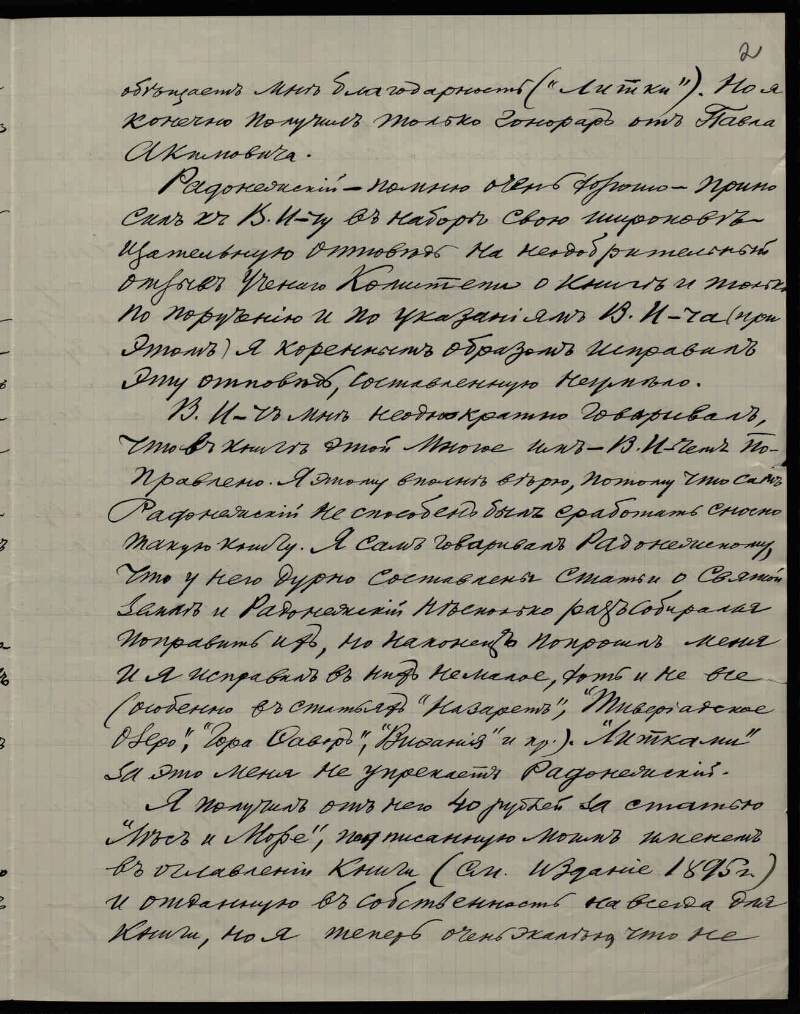 2
обѣщаетъ мнѣ благодарность ("Литки"). Но я
конечно получилъ только гонораръ отъ Павла
Акимовича.
Радонежскій – помню очень хорошо – прино
силъ къ В. И–чу въ наборѣ свою широковѣ–
щательную отповѣдь на неодобрительный
отзывъ Ученаго Комитета о книгѣ и только
по порученію и по указаніямъ В. И–ча (при
этомъ) я кореннымъ образомъ исправилъ
эту отповѣдь, составленную неумѣло.
В. И–чъ мнѣ неоднократно говаривалъ,
что въ книгѣ этой многое имъ – В. И–чемъ по–
правлено. Я этому вполнѣ вѣрю, потому что самъ
Радонежскій не способенъ былъ сработать сносно
такую книгу. Я самъ говаривалъ Радонежскому,
что у него дурно составлены статьи о Святой
Землѣ и Радонежскій нѣсколько разъ собирался
поправить ихъ, но наконецъ попросилъ меня
и я исправилъ въ нихъ немалое, хоть и не все
(особенно въ статьяхъ "Назаретъ", "Тиверіадское
Озеро", "Гора Ѳаворъ", "Виѳанія" и пр.). "Литками"
за это меня не упрекаетъ Радонежскій.
Я получилъ отъ него 40 рублей за статью
"Лѣсъ и Море", подписанную моимъ именемъ
въ оглавленіи Книги (См. изданіе 1895 г.)
и отданную въ собственность навсегда для
Книги, но я теперь очень жалѣю, что не